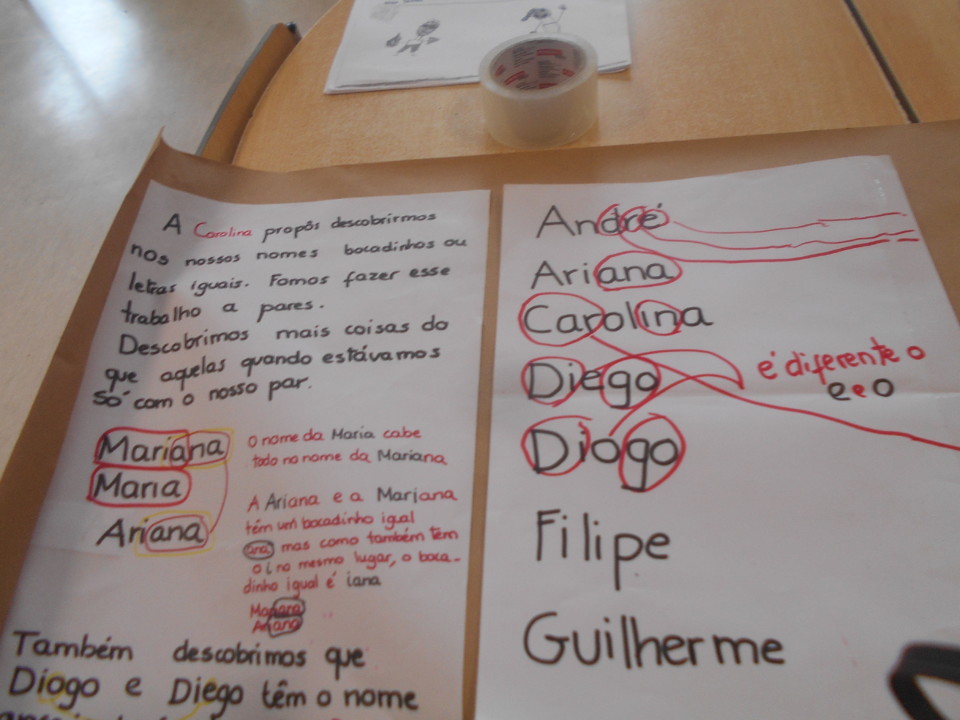 A Carolina propôs descobrirmos
nos nossos nomes bocadinhos ou
letras iguais. Fomos fazer esse
trabalho a pares.
Descobrimos mais coisas do
que aquelas quando estávamos
só com o nosso par.
Mariana
Maria
Ariana
O nome da Maria cabe
todo no nome da Mariana
A Ariana e a Mariana
têm um bocadinho igual
ana mas como também têm
o i no mesmo lugar, o boca-
dinho igual é iana
Mariana
Ariana
Também descobrimos que
Diogo e Diego têm o nome
André
Ariana
Carolina
Diego
Diogo
Filipe
Guilherme
é diferente o
e e o